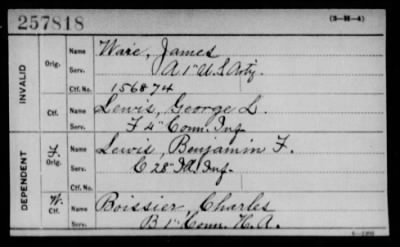 257818 (3-H-4)
INVALID
Orig. Name Ware, James
Serv. A 1" U.S. Arty.
Ctf. No. 156874
Ctf. Name Lewis, George L.
Serv. F 4" Conn. Inf.
DEPENDENT
F. Orig. Name Lewis, Benjamin F.
Serv. C 28" Ill. Inf.
Ctf. No.
W. Ctf. Name Boissier, Charles
Serv. B 1" Conn. H.A.